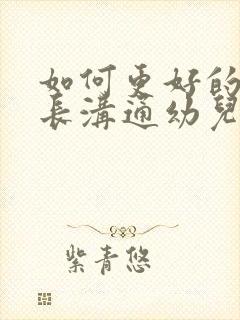 如何更好的
長溝通幼兒
紫青悠